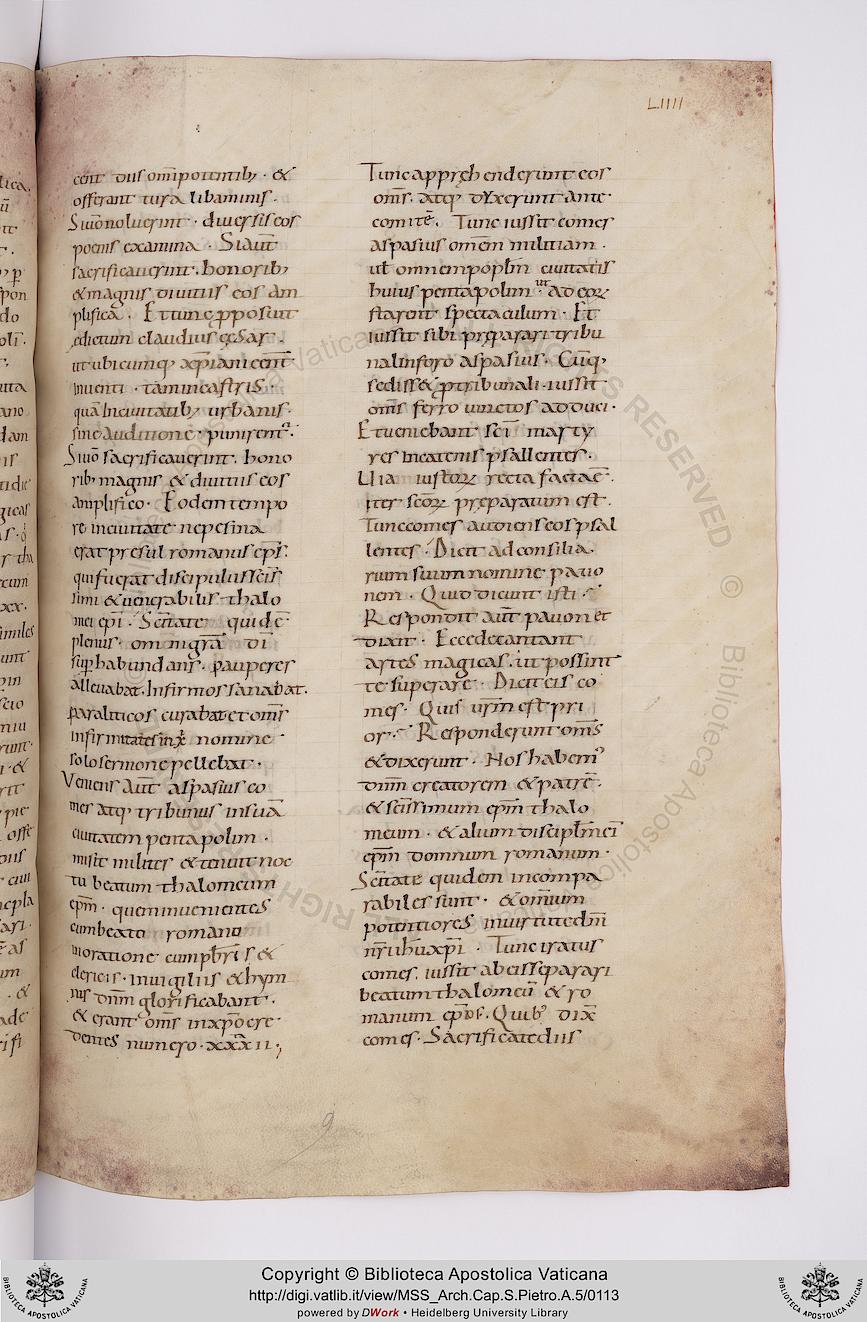 LIIII
cent diis omīpotentib; · &
offerant tura libaminis ·
Siuō noluerint · diuersis eos
poenis examina · Siaut̄
sacrificauerint · honorib;
& magnis diuitiis eos am
plifica · Et tunc p̱posuit
edictum claudius cęsar ·
ut ubicumq; xp̄iani eent̄
inuenti · tam incastris ·
quā Inciuitatib; urbanis ·
sine auditione · punirent᷑ ·
Siuō sacrificauerint · hono
rib; magnis & diuitiis eos
amplifico · Eodem tempo
re inciuitate nepesina
erat presul romanus ep̄s ·
qui fuerat discipulus scīs
simi & uenerabilis thalo
mei ep̄i · Sc̄itate quidē
plenus · omni gr̄a dī
sup̱habundans · pauperes
alleuabat · Infirmos sanabat ·
paraliticos curabat et om̄s
infirmitates in xp̄i nomine
solo sermone pellebat ·
Veniens aut̄ aspasius co
mes atq; tribunus insuā
ciuitatem pentapolim ·
misit milites & tenuit noc
tu beatum thalomeum
ep̄m · quem inuenientes
cum beato romano
inoratione cum pb̄ris &
clericis · inuigiliis & hym
nis dn̄m glorificabant ·
& erant om̄s inxp̄o cre
dentes numero · xxxii ·,
Tunc appręhenderunt eos
om̄s · atq; dixerunt ante
comitē · Tunc iussit comes
aspasius omēm militiam ·
ut omnem popl̄m ciuitatis
huius pentapolim ut ad eoꝝ
starent spectaculum · Et
iussit sibi pręparari tribu
nal inforo aspasius · Cūq;
sediss& p̱tribunali · iussit
om̄s ferro uinctos adduci ·
Et ueniebant scī marty
res incatenis psallentes ·
Uia iustoꝝ recta facta ē ·
iter sc̄oꝝ preparatum est ·
Tunc comes audiens eos psal
lentes · Dicit ad consilia
rium suum nomine pauo
nem · Quid dicunt isti ·
Respondit aut̄ pauon et
dixit · Ecce decantant
artes magicas · ut possint
te superare · Dicit eis co
mes · Quis ur̄m est pri
or · Responderunt om̄s
& dixerunt · Nos habem᾽
dn̄m creatorem & patrē ·
& sc̄issimum ep̄m thalo
meum · & alium discipl̄m ei᾽
ep̄m domnum romanum ·
Sc̄itate quidem incompa
rabiles sunt · & omnium
potentiores inuirtute dn̄i
nr̄i ihū xp̄i · Tunc iratus
comes · iussit ab eis separari
beatum thalomeū & ro
manum ep̄os · Quib᾽ dix̄
comes · Sacrificate diis
Copyright © Biblioteca Apostolica Vaticana
http://digi.vatlib.it/view/MSS_Arch.Cap.S.Pietro.A.5/0113
powered by DWork • Heidelberg University Library